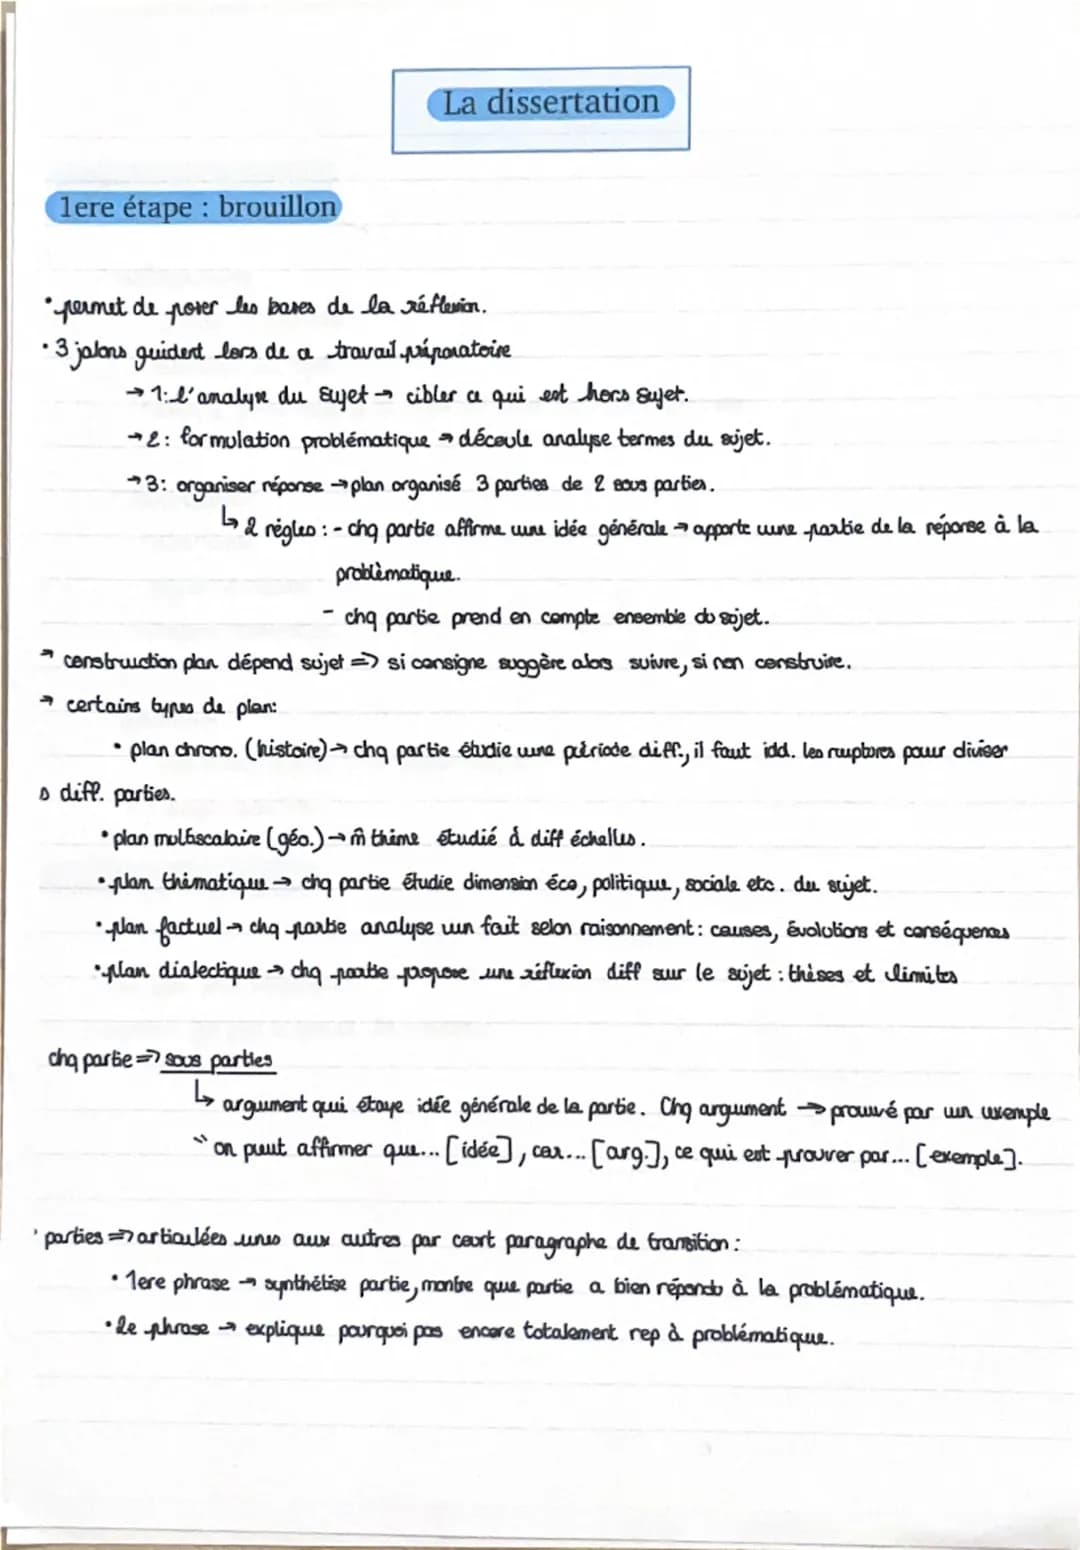 La dissertation
1ere étape : brouillon
• permet de poser les bases de la réflexion.
• 3 jalons guident lors de ce travail préparatoire
→ 1: l'analyse du sujet → cibler ce qui est hors sujet.
→ 2: formulation problématique → découle analyse termes du sujet.
→ 3: organiser réponse → plan organisé 3 parties de 2 sous parties.
↳ 2 règles : - chq partie affirme une idée générale → apporte une partie de la réponse à la
problèmatique.
- chq partie prend en compte ensemble du sujet.
→ construction plan dépend sujet => si consigne suggère alors suivre, si non construire.
→ certains types de plan:
• plan chrono. (histoire) → chq partie étudie une période diff., il faut idd. les ruptures pour diviser
s diff. parties.
• plan multiscalaire (géo.) → m̂ thème étudié à diff échelles.
• plan thématique → chq partie étudie dimension éco, politique, sociale etc. du sujet.
• plan factuel → chq partie analyse un fait selon raisonnement : causes, évolutions et conséquences
• plan dialectique → chq partie propose une réflexion diff sur le sujet : thèses et limites
chq partie => sous parties
↳ argument qui étaye idée générale de la partie. Chq argument → prouvé par un exemple
" on peut affirmer que... [idée], car... [arg.], ce qui est prouver par... [exemple].
' parties => articulées unes aux autres par court paragraphe de transition :
• 1ere phrase → synthétise partie, montre que partie a bien répondu à la problématique.
• 2e phrase → explique pourquoi pas encore totalement rep à problématique.